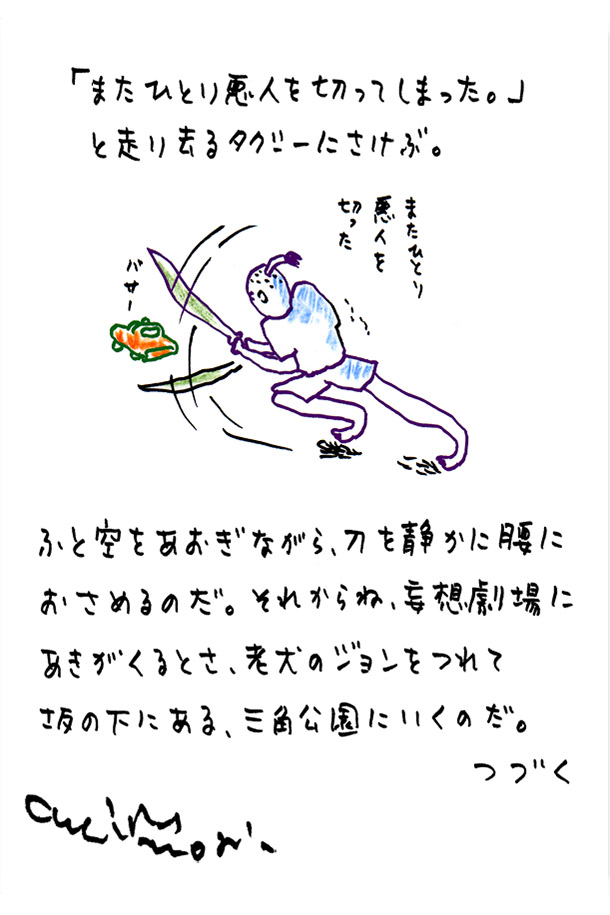 「またひとり悪人を切ってしまった。」
と走り去るタクシーにさけぶ。
またひとり
悪人を
切った
バサー
ふと空をあおぎながら、刀を静かに腰に
おさめるのだ。それからね、妄想劇場に
あきがくるとさ、老犬のジョンをつれて
坂の下にある、三角公園にいくのだ。
つづく